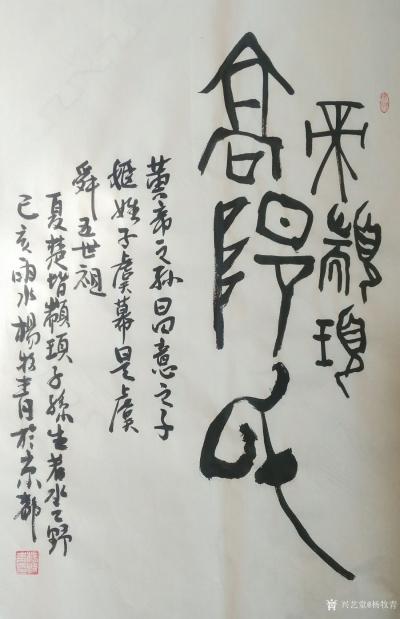 帝颛顼
高陽氏
黄帝之孙昌意之子
姬姓子虞幕是虞
舜五世祖
夏楚皆颛顼子孫生若水之野
己亥雨水楊牧青於京都
兴艺堂@杨牧青